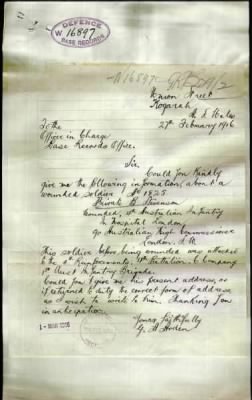 DEFENCE
W 16897
BASE RECORDS
Union Street
Kogarah
N. S. Wales
27th February 1916
To the
Officer in Charge
Base Records Office.
Sir
Could You Kindly
give me the following information, about a
wounded soldier No 1825
Private B. Stevenson
Wounded, 1st Australian Infantry
In Hospital London
c/o Australian High Commissioner
London, S.W.
This soldier before being wounded was attached
to the 4th Reinforcements, 1st Battalion, E Company
1st Aust Infantry Brigade.
Could You give me his present address, or
if returned to duty the correct form of address
as I wish to write to him. Thanking You
in anticipation
Yours faithfully
G. H.
1 - MAR 1916